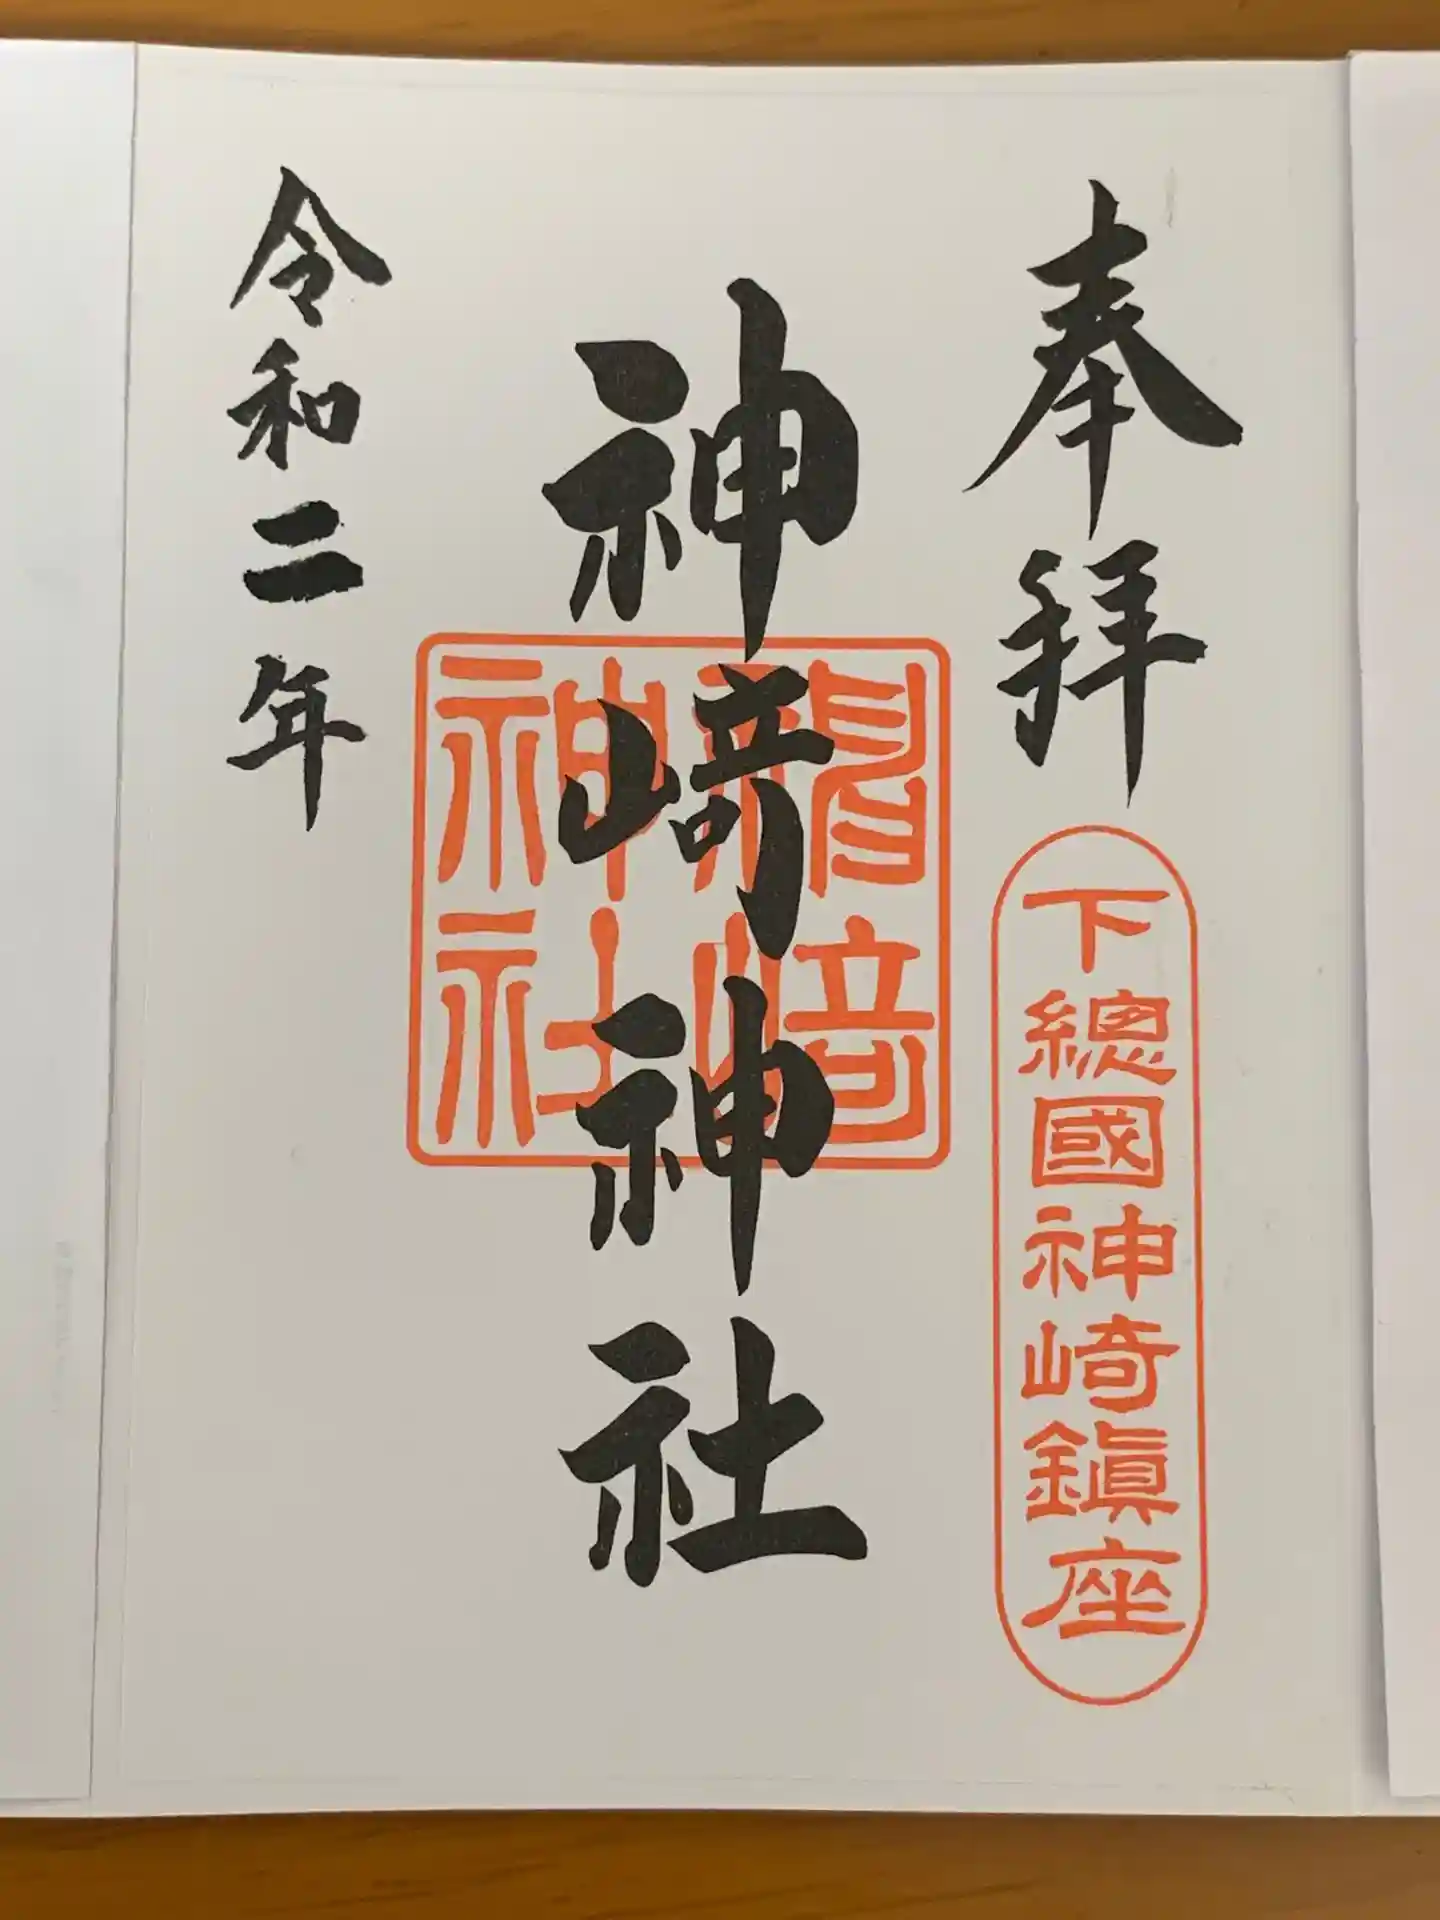 奉拝
下總國神崎鎭座
神﨑神社
神﨑
神社
令和二年